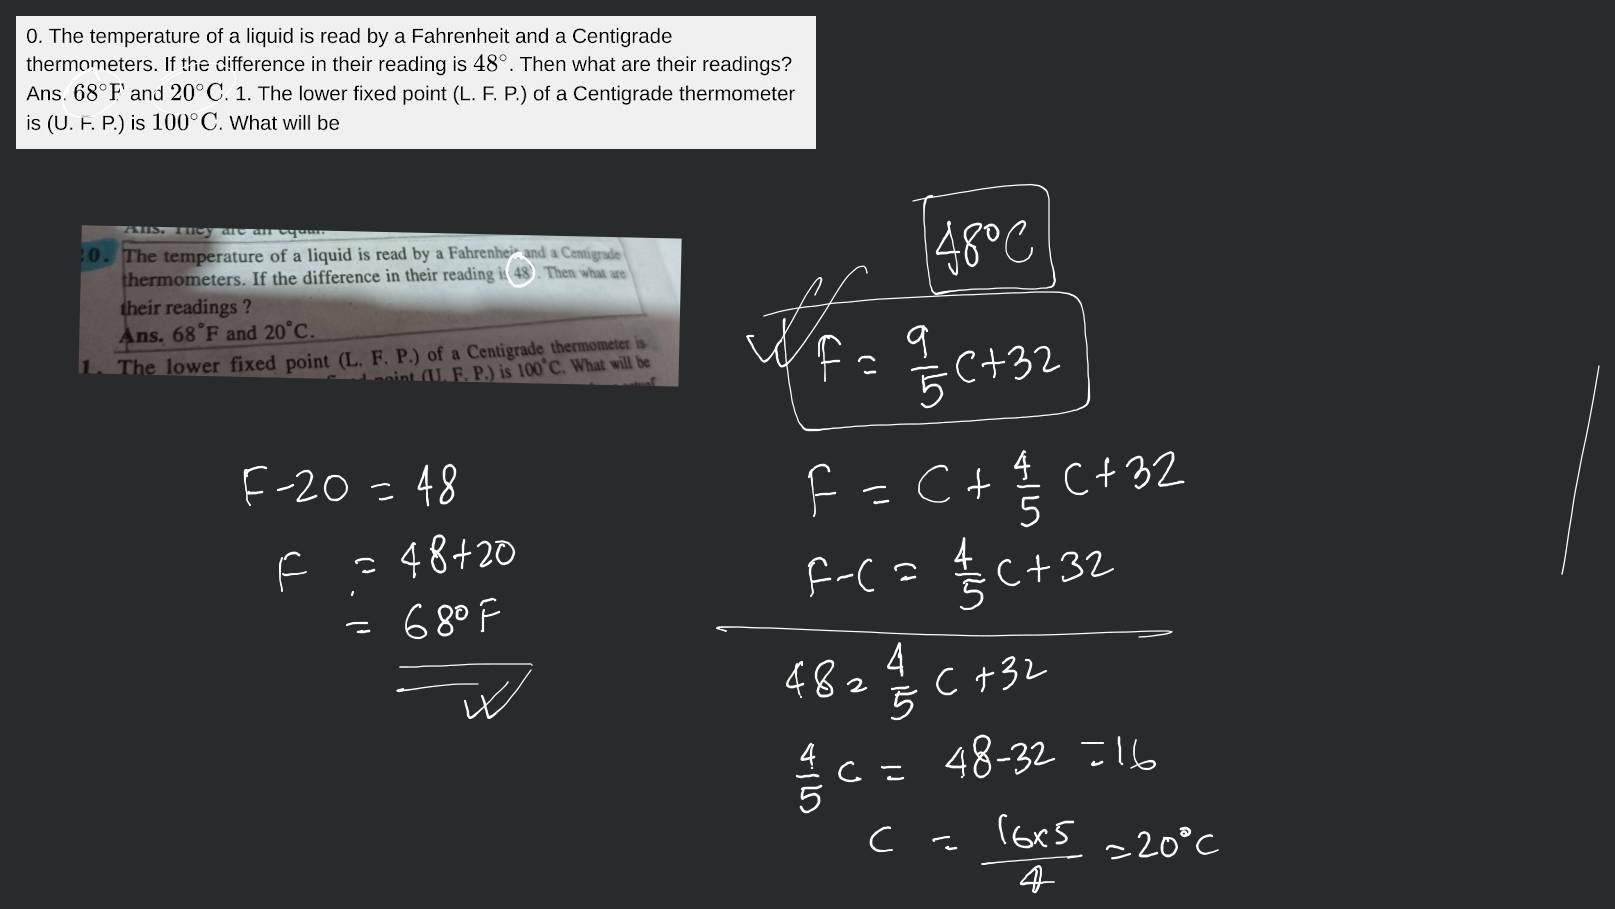 0. The temperature of a liquid is read by a Fahrenheit and a Centigrade
thermometers. If the difference in their reading is 48°. Then what are their readings?
Ans. 68°F and 20°C. 1. The lower fixed point (L. F. P.) of a Centigrade thermometer
is (U. F. P.) is 100°C. What will be
Ans. They are all equal.
0. The temperature of a liquid is read by a Fahrenheit and a Centigrade
thermometers. If the difference in their reading is 48°. Then what are
their readings ?
Ans. 68°F and 20°C.
1. The lower fixed point (L. F. P.) of a Centigrade thermometer is
point (U. F. P.) is 100°C. What will be
48°C
F = 9/5 C+32
F = C + 4/5 C+32
F-C = 4/5 C+32
48 = 4/5 C +32
4/5 C = 48-32 =16
C = 16x5/4 =20°C
F-20 = 48
F = 48+20
= 68°F